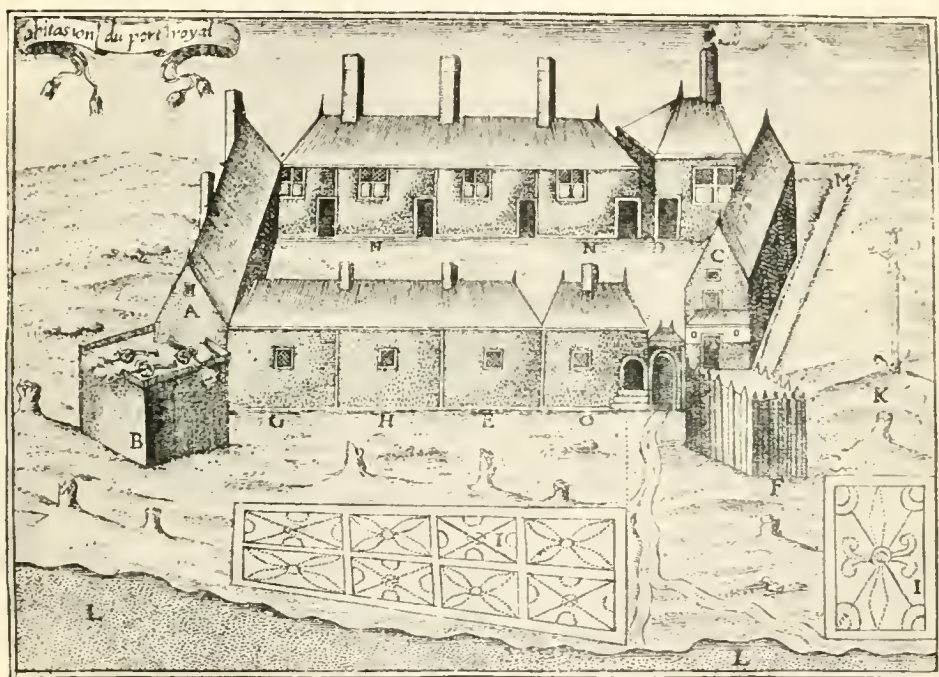 abitasion du port royal
M
N N D C
A
K
G H E O
B
F
I
I
L
L